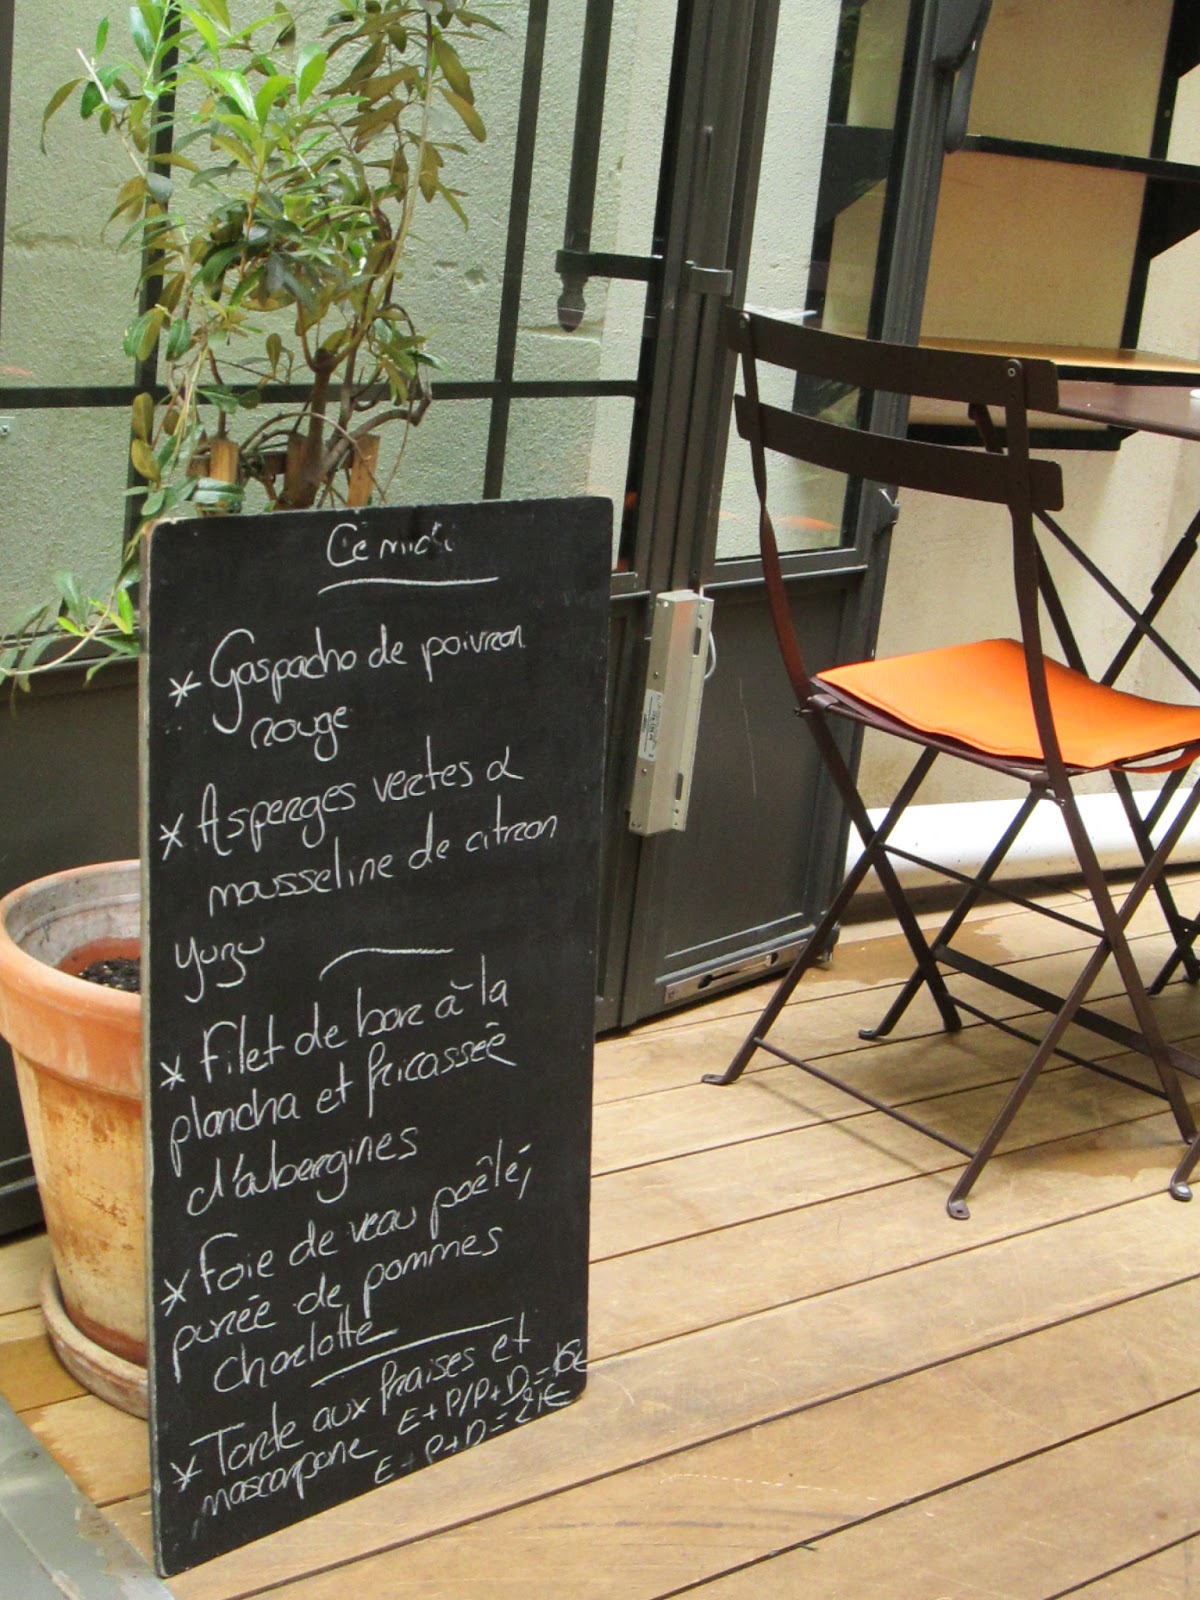 Ce midi
* Gaspacho de poivron
rouge
* Asperges vertes &
mousseline de citron
yuzu
* Filet de bar à la
plancha et fricassée
d'aubergines
* Foie de veau poêlé,
purée de pommes
Charlotte
* Tarte aux fraises et
mascarpone E+P/P+D = 16€
E+P+D = 21€